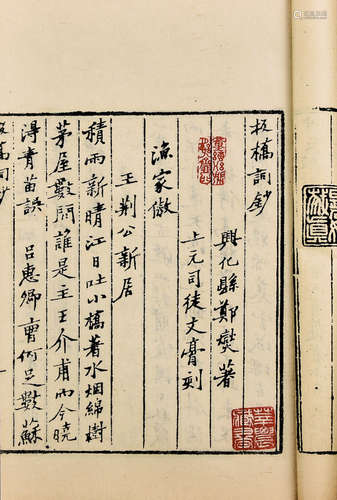 板橋詞鈔
興化縣鄭燮著
上元司徒文膏刻
漁家傲
王荆公新居
積雨新晴江日吐小橋著水烟綿樹
茅屋數間誰是主王介甫而今曉
得青苗誤 呂惠卿曹何足數蘇
板橋詞鈔